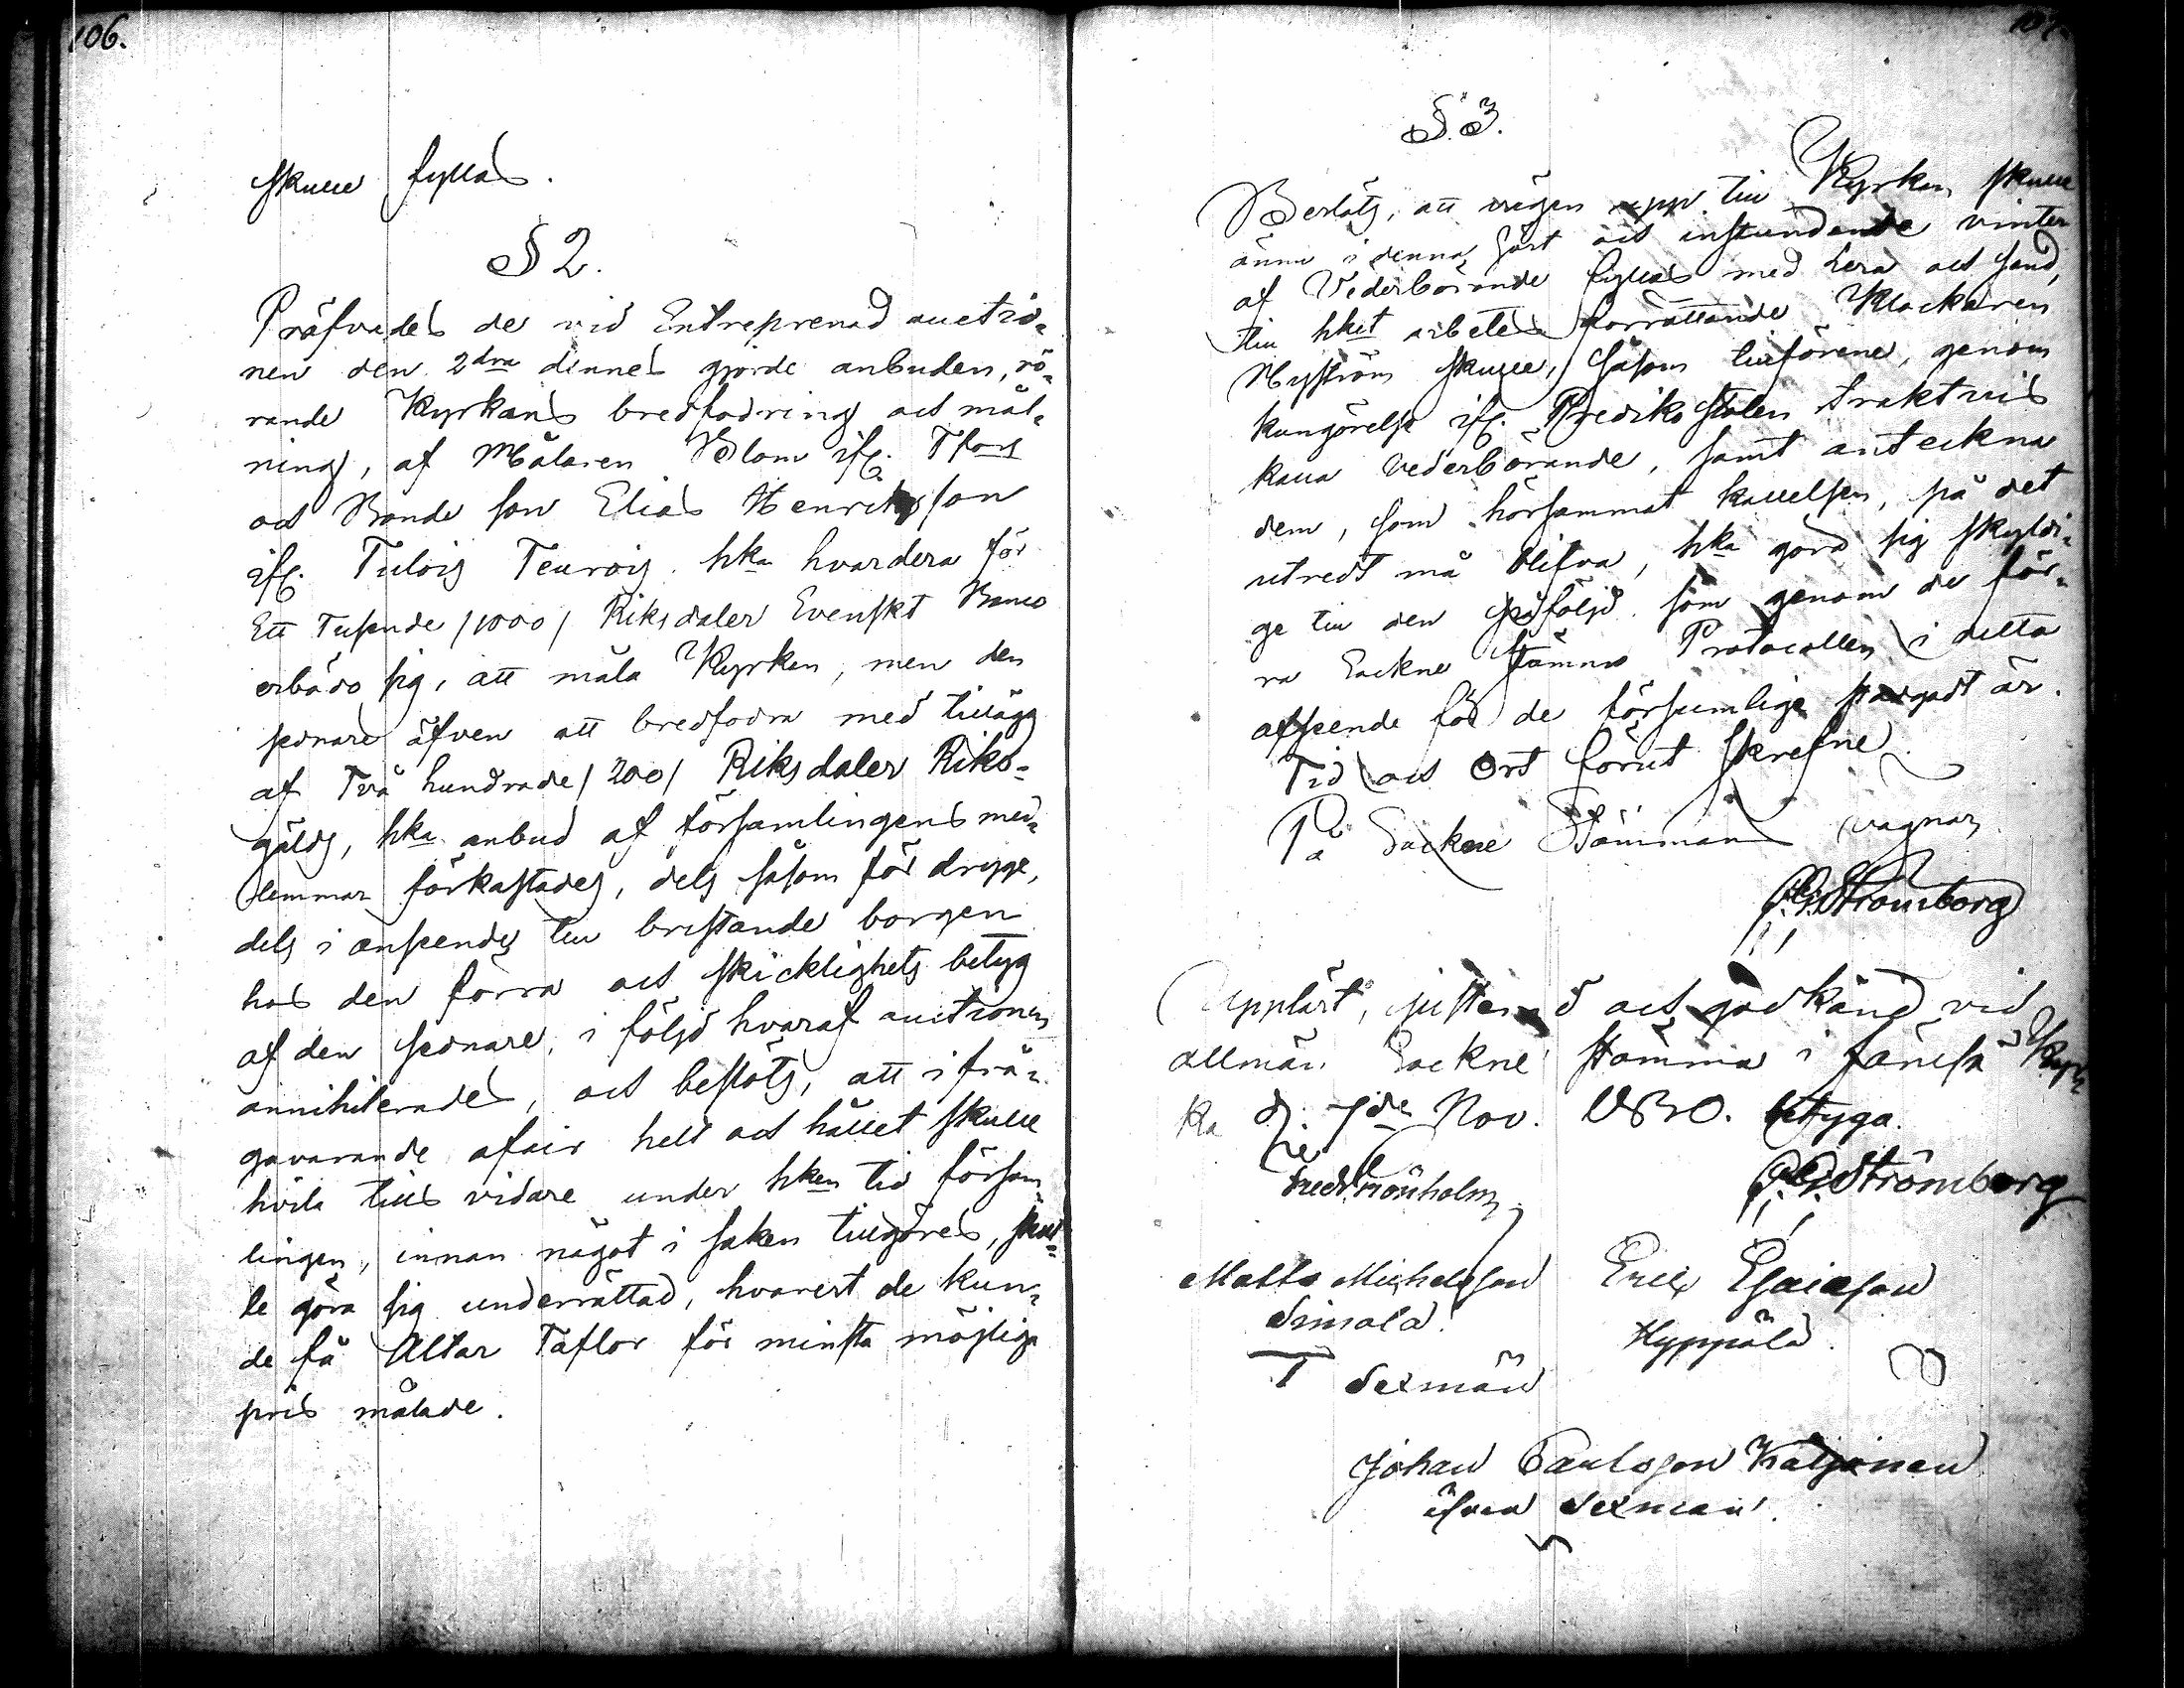 106.
skulle fyllas.
§ 2.
Pröfvades de vid Entreprenad auctio-
nen den 2dra dennes gjorde anbuden, rö-
rande Kyrkans bredfodring och mål-
ning, af Målaren Blom ifr. Tfors
och Bonde son Elias Henriksson
ifr. Tulois Teurois hka hvardera för
Ett Tusende /1000/ Riksdaler Svenskt Banco
erbödo sig, att måla Kyrkan, men den
sednare äfven att bredfodra med tillägg
af Två hundrade /200/ Riksdaler Riks-
gälds, hka anbud af församlingens med-
lemmar förkastades, dels såsom för dryge,
dels i anseende till bristande borgen
hos den förra och skicklighets betyg
af den sednare, i följd hvaraf auctionen
annihilerades, och beslöts, att i frå-
gavarande afair helt och hållet skulle
hvila tills vidare under hken tid försam-
lingen, innan något i saken tillgöres, skul-
le göra sig underrättad, hvarest de kun-
de få Altar Taflor för minsta möjliga
pris målade.
107.
§ 3.
Beslöts, att vägen upp till Kyrkan skulle
ännu i denna höst och instundande vinter
af Vederbörande fyllas med lera och sand,
till hket arbetes förrättande Klockaren
Nyström skulle, såsom tillförene, genom
kungörelse ifr. Prediko stolen traktvis
kalla Vederbörande, samt anteckna
dem, som hörsammat kallelsen, på det
utredt må blifva, hka gord sig skyldi-
ge till den påföljd som genom de för-
ra Sockne Stämno Protocollen i detta
afseende för de försumlige stadgadt är.
Tid och Ort förut skrefne.
På Sockne Stämmans vägnar
Strömborg
Uppläst, justerad och godkänd vid
allmän Sockne stämma i Jämsä Kyr-
ka d. 7de Nov. 1830. betyga.
Fredr. Grönholm
Strömborg
Matts Michelsson Eric Esaiasson
Simola. Hyppölä.
Sexmän
Johan Paulsson Kaljonen
äfven Sexman.